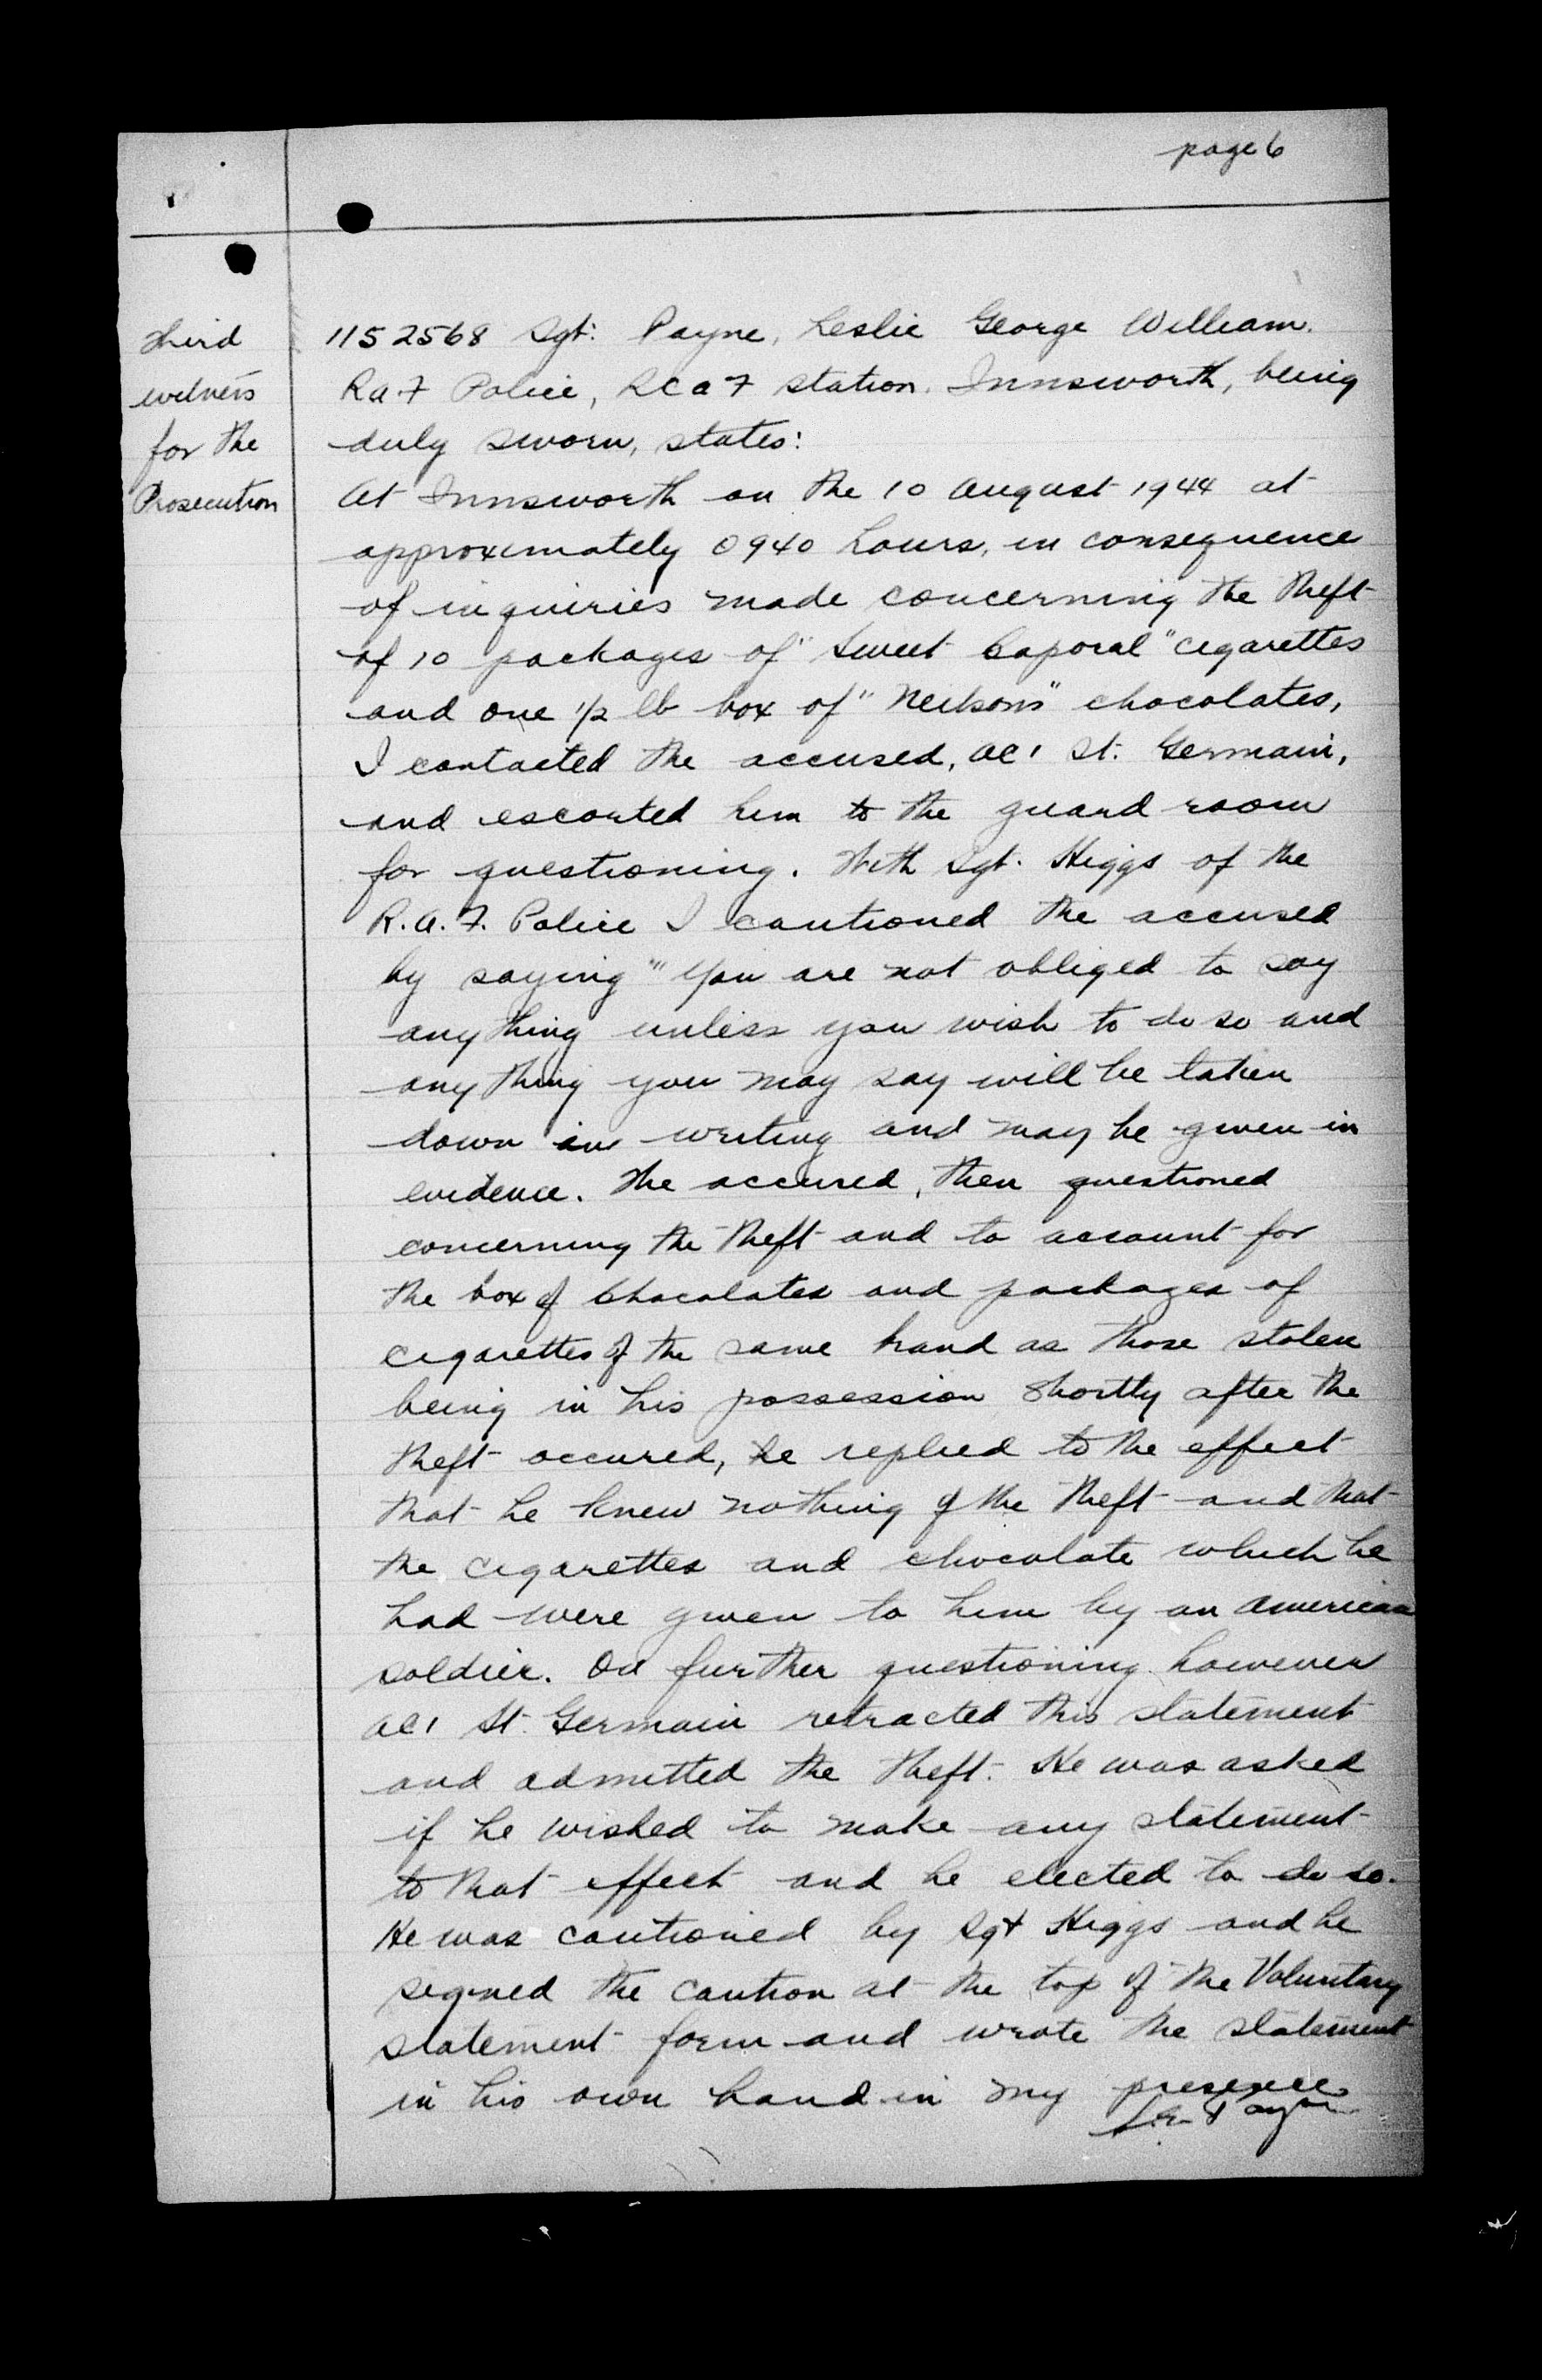 page 6
Third
witness
for the
Prosecution
1152568 Sgt. Payne, Leslie George William.
RAF Police, RCAF Station. Innsworth, being
duly sworn, states:
At Innsworth on the 10 August 1944 at
approximately 0940 hours, in consequence
of inquiries made concerning the theft
of 10 packages of "Sweet Caporal" cigarettes
and one 1/2 lb box of "Neilsons" chocolates,
I contacted the accused, AC1 St. Germain,
and escorted him to the guard room
for questioning. With Sgt. Higgs of the
R.A.F. Police I cautioned the accused
by saying "You are not obliged to say
anything unless you wish to do so and
anything you may say will be taken
down in writing and may be given in
evidence. The accused, then questioned
concerning the theft and to account for
the box of chocolates and packages of
cigarettes of the same brand as those stolen
being in his possession shortly after the
theft occured, he replied to the effect
that he knew nothing of the theft and that
the cigarettes and chocolate which he
had were given to him by an American
soldier. On further questioning however
AC1 St. Germain retracted this statement
and admitted the theft. He was asked
if he wished to make any statement
to that effect and he elected to do so.
He was cautioned by Sgt Higgs and he
signed the caution at the top of the Voluntary
statement form and wrote the statement
in his own hand in my presence
Payne